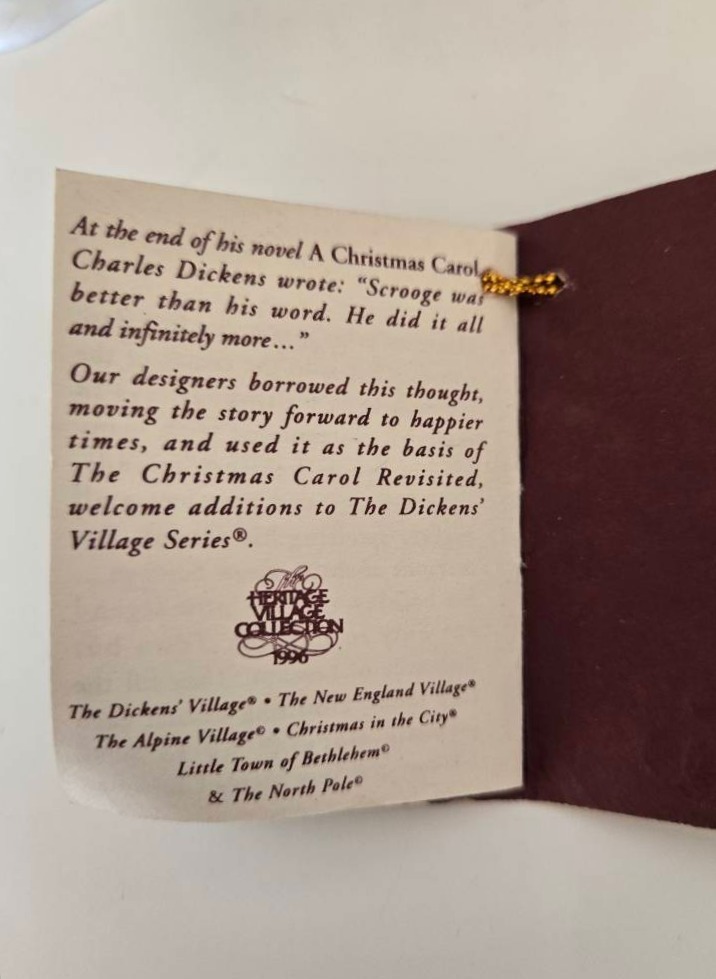 At the end of his novel A Christmas Carol,
Charles Dickens wrote: “Scrooge was
better than his word. He did it all
and infinitely more...”
Our designers borrowed this thought,
moving the story forward to happier
times, and used it as the basis of
The Christmas Carol Revisited,
welcome additions to The Dickens’
Village Series®.
The
HERITAGE
VILLAGE
COLLECTION
1996
The Dickens’ Village® • The New England Village®
The Alpine Village© • Christmas in the City®
Little Town of Bethlehem©
& The North Pole©